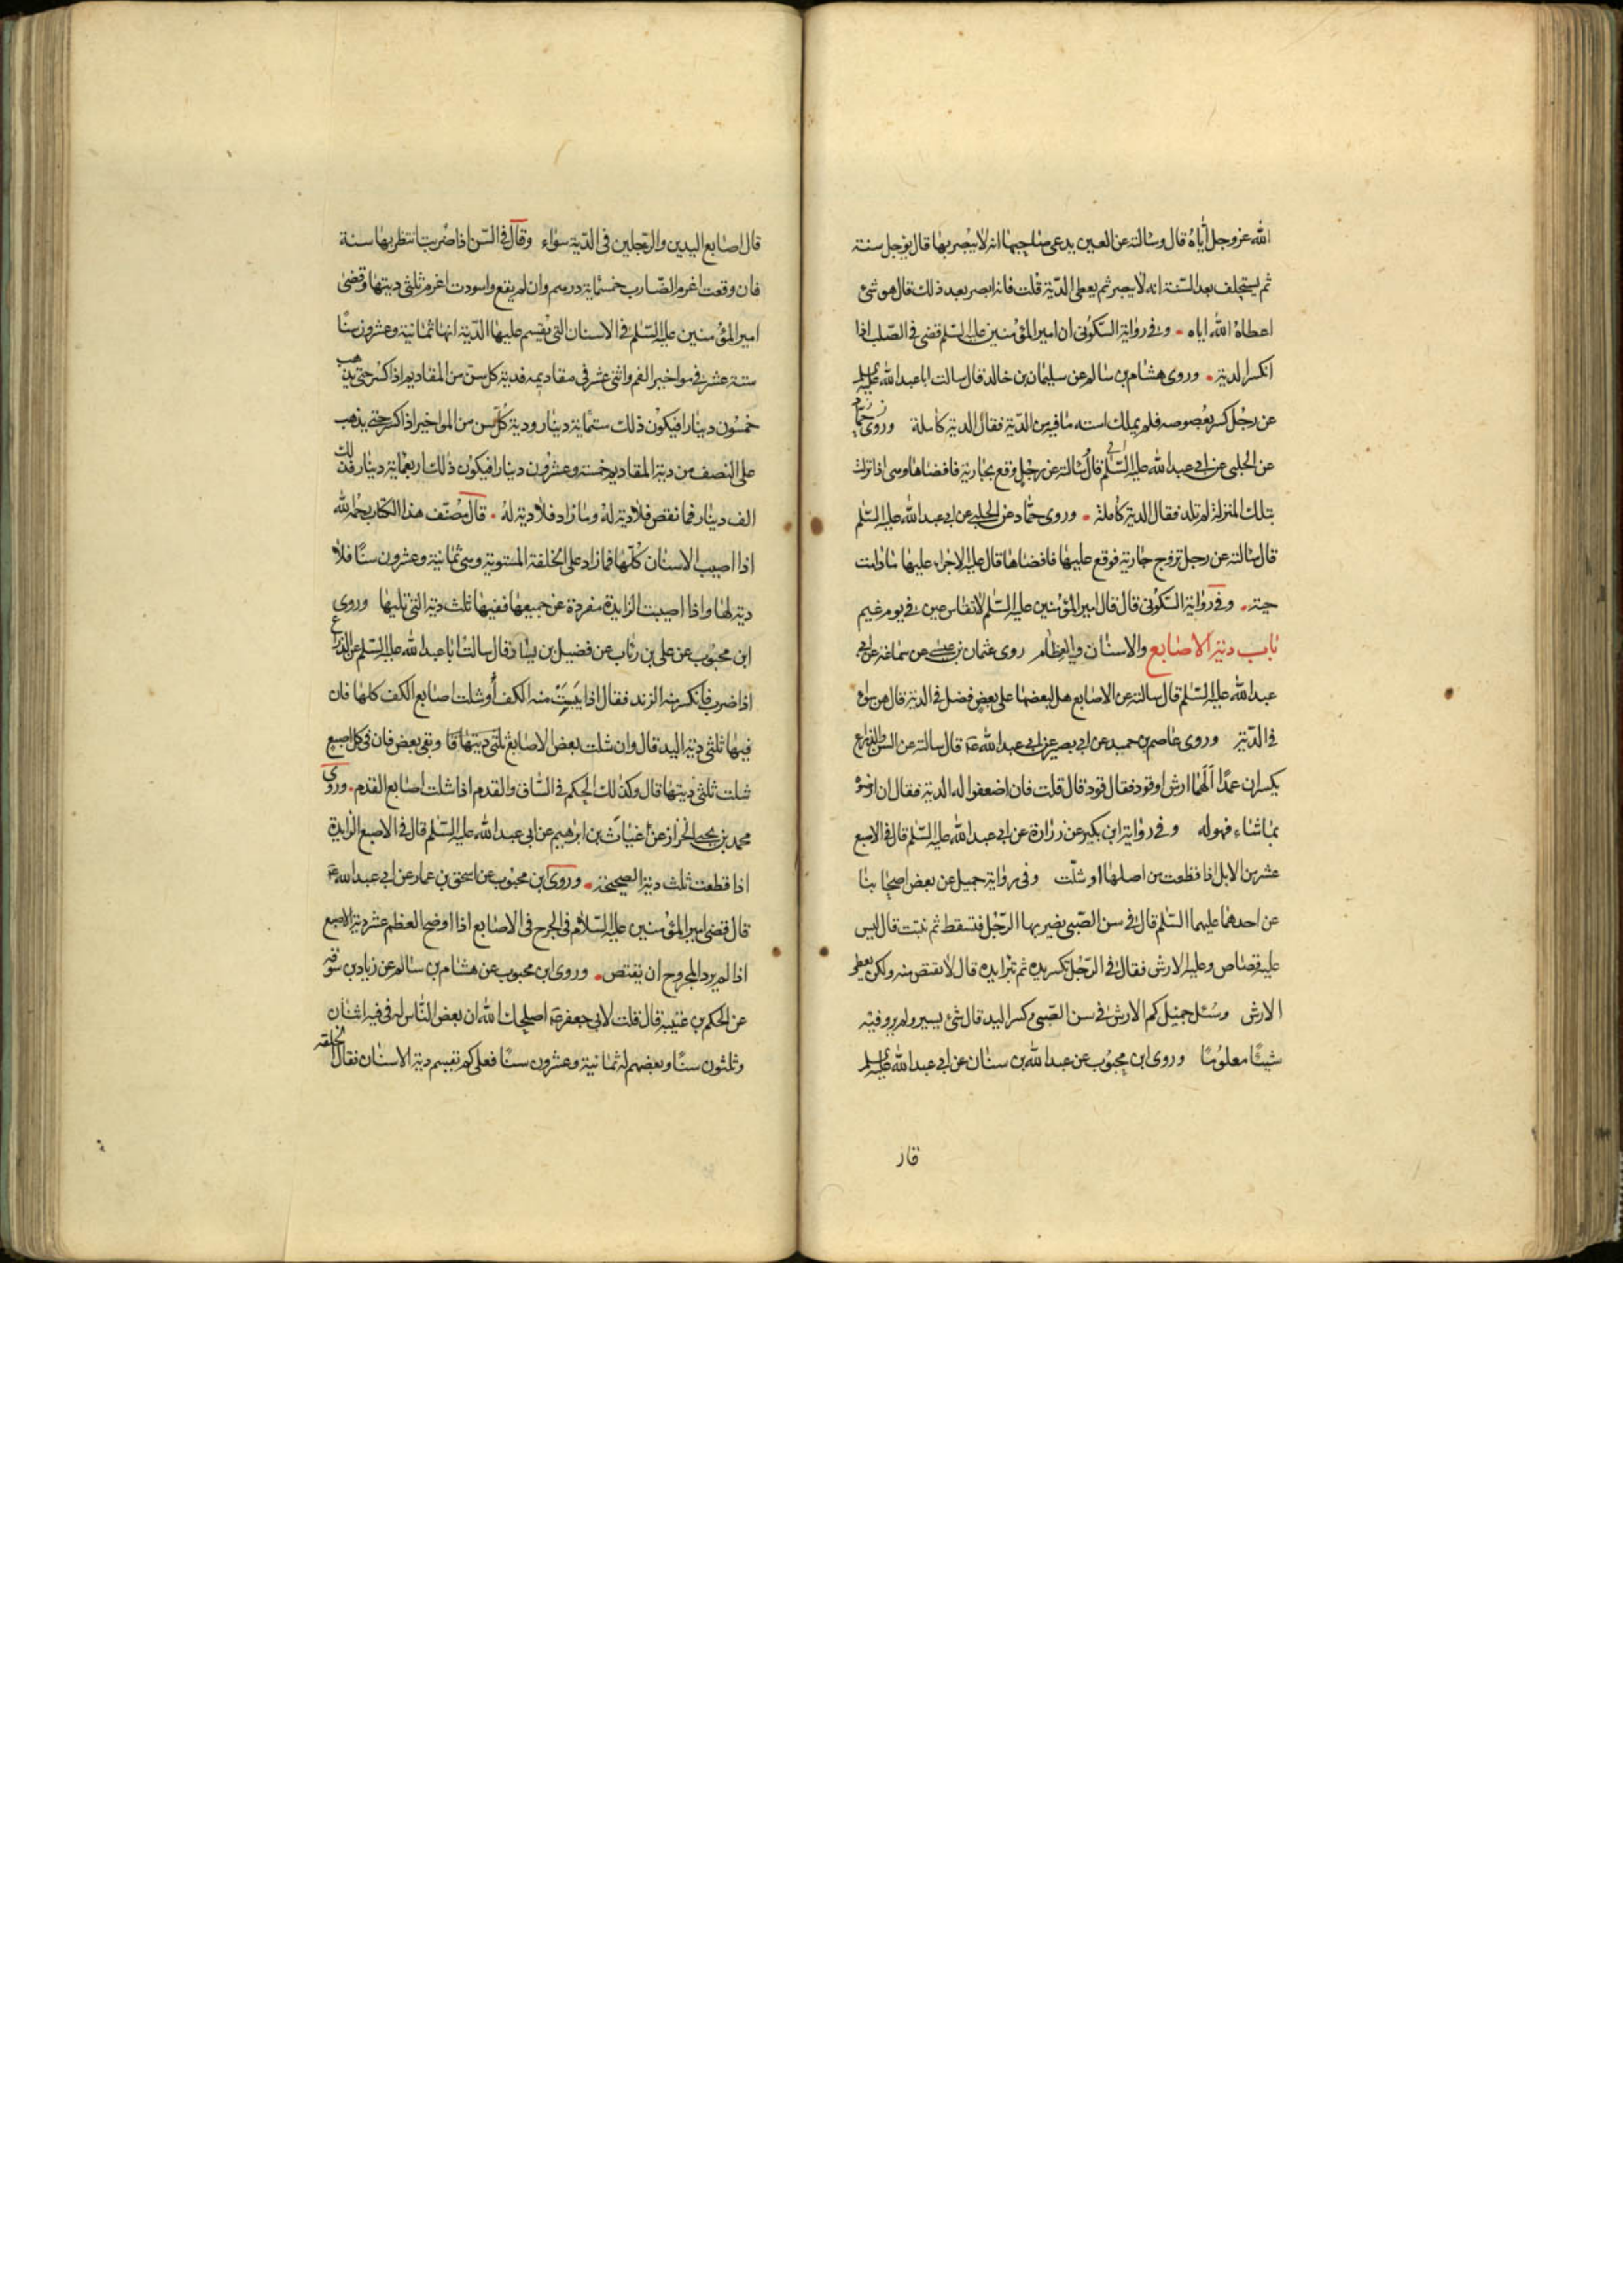 الله عز وجل اياه قال وسالته عن العين يدعى صاحبها انه لا يبصر بها قال يؤجل سنته
ثم يستحلف بعد السنة انه لا يبصر ثم يعطى الدية قلت فانه ابصر بعد ذلك قال هو شئ
اعطاه الله اياه وفي رواية السكونى ان امير المؤمنين عليه السلم قضى في الصلب اذا
انكسر الدية وروى هشام بن سالم عن سليمان بن خالد قال سالت ابا عبد الله عليه السلم
عن رجل كسر بعصوصه فلم يملك استه ما فيه من الدية فقال الدية كاملة وروى حماد
عن الحلبى عن ابي عبد الله عليه السلم قال سالته عن رجل وقع بجارية فافضاها وهى اذا تركت
بتلك المنزلة لم تلد فقال الدية كاملة وروى حماد عن الحلبي عن ابي عبد الله عليه السلم
قال سالته عن رجل تزوج جارية فوقع عليها فافضاها قال عليه الاجراء عليها ما دامت
حية وفي رواية السكونى قال قال امير المؤمنين عليه السلم لا تقاس عين في يوم غيم
باب دية الاصابع والاسنان والعظام روى عثمان بن عيسى عن سماعة عن ابي
عبد الله عليه السلم قال سالته عن الاصابع هل لبعضها على بعض فضل في الدية قال هن سواء
في الدية وروى عاصم بن حميد عن ابي بصير عن ابي عبد الله ع قال سالته عن السن والذراع
يكسران عمدا الهما ارش او قود فقال قود قال قلت فان اضعفوا له الدية فقال ان ارضوه
بما شاء فهو له وفي رواية ابن بكير عن زرارة عن ابي عبد الله عليه السلم قال في الاصبع
عشر من الابل اذا قطعت من اصلها او شلت وفي رواية جميل عن بعض اصحابنا
عن احدهما عليهما السلم قال في سن الصبى يضربها الرجل فتسقط ثم تنبت قال ليس
عليه قصاص وعليه الارش فقال في الرجل تكسر يده ثم تبرا يده قال لا يقتص منه ولكن يعطى
الارش وسئل جميل كم الارش في سن الصبى وكسر اليد قال شئ يسير ولم يرو فيه
شيئا معلوما وروى ابن محبوب عن عبد الله بن سنان عن ابي عبد الله عليه السلم
قال
قال اصابع اليدين والرجلين في الدية سواء وقال في السن اذا ضربت انتظر بها سنة
فان وقعت اغرم الضارب خمسماية درهم وان لم يقع واسودت اغرم ثلثى ديتها وقضى
امير المؤمنين عليه السلم في الاسنان التي يقسم عليها الدية انها ثمانية وعشرون سنا
ستة عشر في مواخير الفم واثنى عشر في مقاديمه فدية كل سن من المقاديم اذا كسر حتى يذهب
خمسون دينارا فيكون ذلك ستماية دينار ودية كل سن من المواخير اذا كسر حتى يذهب
على النصف من دية المقاديم خمسة وعشرون دينارا فيكون ذلك اربعماية دينار فذلك
الف دينار فما نقص فلا دية له وما زاد فلا دية له قال مصنف هذا الكتاب رحمه الله
اذا اصيب الاسنان كلها فما زاد على الخلقة المستوية وهى ثمانية وعشرون سنا فلا
دية لها واذا اصيبت الزايدة مفردة عن جميعها ففيها ثلث دية التي تليها وروى
ابن محبوب عن على بن رئاب عن فضيل بن يسار قال سالت ابا عبد الله عليه السلم عن الذراع
اذا ضرب فانكسر منه الزند فقال اذا يبست منه الكف او شلت اصابع الكف كلها فان
فيها ثلثى دية اليد قال وان شلت بعض الاصابع وبقى بعض فان في كل اصبع
شلت ثلثى ديتها قال وكذلك الحكم في الساق والقدم اذا شلت اصابع القدم وروى
محمد بن يحيى الخزاز عن غياث بن ابرهيم عن ابي عبد الله عليه السلم قال في الاصبع الزايدة
اذا قطعت ثلث دية الصحيحة وروى ابن محبوب عن اسحق بن عمار عن ابي عبد الله ع
قال قضى امير المؤمنين عليه السلام في الجرح في الاصابع اذا اوضح العظم عشر دية الاصبع
اذا لم يرد المجروح ان يقتص وروى ابن محبوب عن هشام بن سالم عن زياد بن سوقه
عن الحكم بن عتيبة قال قلت لابي جعفر ع اصلحك الله ان بعض الناس له في فيه اثنان
وثلثون سنا وبعضهم له ثمانية وعشرون سنا فعلى كم تقسم دية الاسنان فقال الخلقه